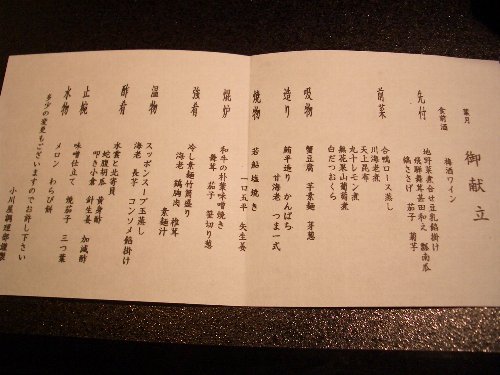 御献立
葉月
食前酒
梅酒ワイン
先付
地野菜煮合せ豆乳餡掛け
飛騨舞茸甚田和え 瓢南瓜
鶴ささげ 茄子 菊芋
前菜
合鴨ロース蒸し
川海老煮
天上昆布
丸十レモン煮
無花果山葡萄煮
白だつおくら
吸物
蟹豆腐 芋素麺 芽葱
造り
鮪平造り かんぱち
甘海老 つま一式
焼物
若鮎塩焼き
一〇五平 矢生姜
焜炉
和牛の朴葉味噌焼き
舞茸 茄子 笹切り葱
強肴
冷し素麺竹筒盛り
海老 鶏胸肉 椎茸
素麺汁
温物
スッポンスープ玉蒸し
海老 長芋 コンソメ餡掛け
酢肴
水雲と北寄貝
蛇腹胡瓜 黄身酢
叩き小倉 針生姜 加減酢
止椀
味噌仕立て 焼茄子 三つ葉
水物
メロン わらび餅
多少の変更もございますのでお許し下さい
小川屋調理部謹製